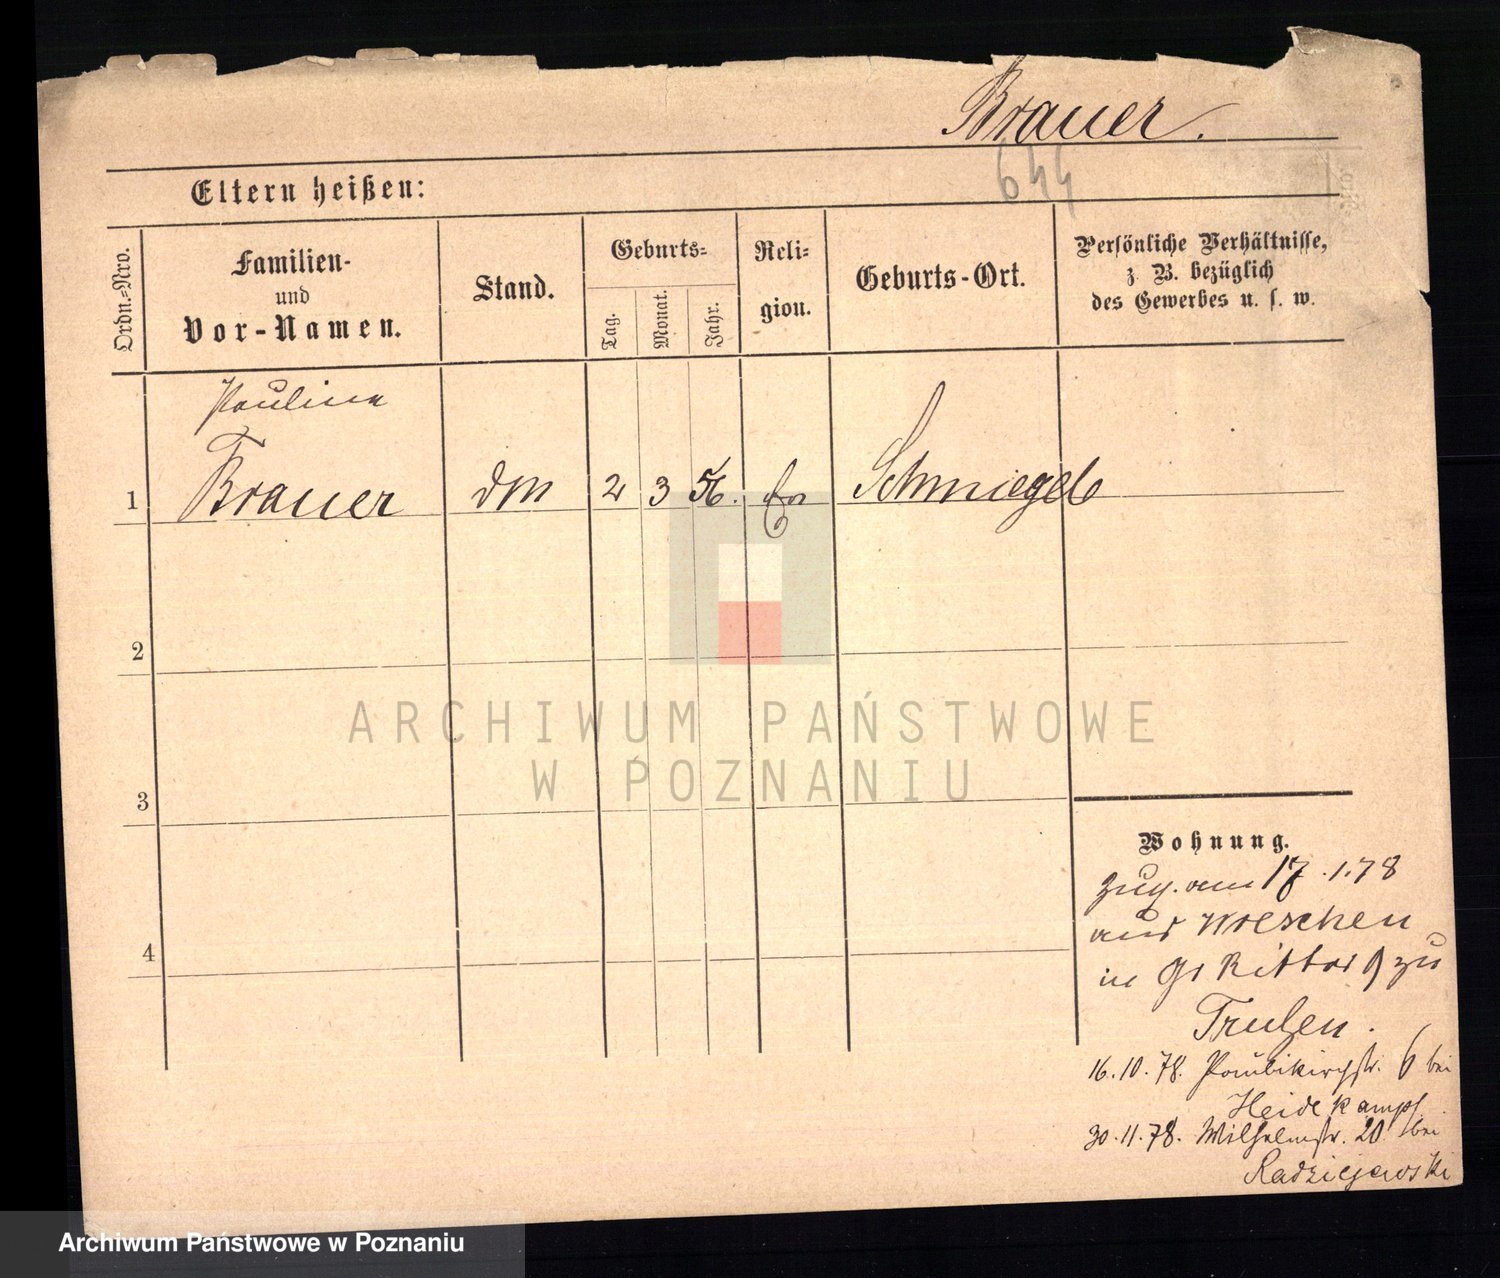 Brauer.
644
Eltern heißen:
Ordn.-Nro.
Familien-
und
Vor-Namen.
Stand.
Geburts-
Tag.
Monat.
Jahr.
Reli-
gion.
Geburts-Ort.
Persönliche Verhältnisse,
z. B. bezüglich
des Gewerbes u. s. w.
Pauline
1 Brauer DM 2 3 56. Schmiegel
2
3
4
ARCHIWUM PAŃSTWOWE
W POZNANIU
Wohnung.
zug. am 17.1.78
aus Wreschen
in Gr Ritter 9 zu
16.10.78. 6 bei
Heidekampf.
30.11.78. Wilhelmstr. 20 bei
Radziejewski
Archiwum Państwowe w Poznaniu